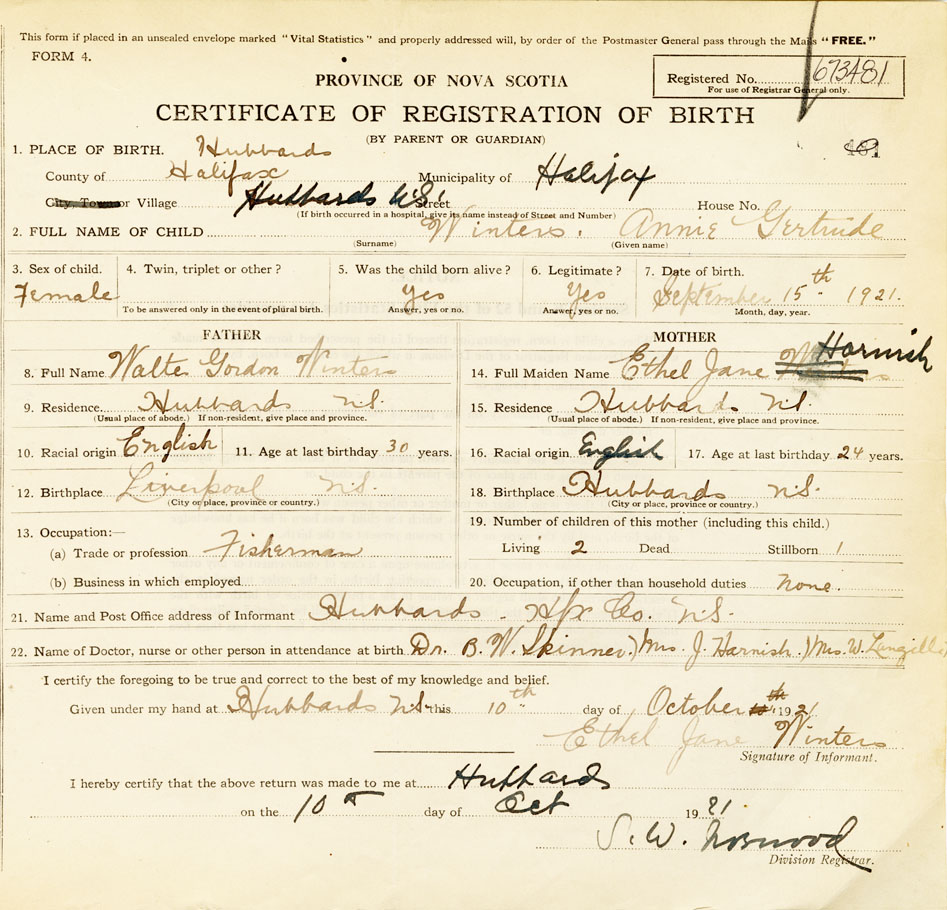 This form if placed in an unsealed envelope marked "Vital Statistics" and properly addressed will, by order of the Postmaster General pass through the Mails "FREE."
FORM 4.
PROVINCE OF NOVA SCOTIA
Registered No. 673481
For use of Registrar General only.
CERTIFICATE OF REGISTRATION OF BIRTH
(BY PARENT OR GUARDIAN)
481
1. PLACE OF BIRTH. Hubbards
County of Halifax Municipality of Halifax
City, Town or Village Hubbards N.S. Street House No.
(If birth occurred in a hospital, give its name instead of Street and Number)
2. FULL NAME OF CHILD Winters. Annie Gertrude
(Surname) (Given name)
3. Sex of child. 4. Twin, triplet or other? 5. Was the child born alive? 6. Legitimate? 7. Date of birth.
Female Yes Yes September 15th 1921.
To be answered only in the event of plural birth. Answer, yes or no. Answer, yes or no. Month, day, year.
FATHER MOTHER
8. Full Name Walter Gordon Winters 14. Full Maiden Name Ethel Jane Harnish
9. Residence Hubbards N.S. 15. Residence Hubbards N.S.
(Usual place of abode.) If non-resident, give place and province. (Usual place of abode.) If non-resident, give place and province.
10. Racial origin English 11. Age at last birthday 30 years. 16. Racial origin English 17. Age at last birthday 24 years.
12. Birthplace Liverpool N.S. 18. Birthplace Hubbards N.S.
(City or place, province or country.) (City or place, province or country.)
13. Occupation:— 19. Number of children of this mother (including this child.)
(a) Trade or profession Fisherman Living 2 Dead Stillborn 1
(b) Business in which employed 20. Occupation, if other than household duties none.
21. Name and Post Office address of Informant Hubbards. Hfx Co. N.S.
22. Name of Doctor, nurse or other person in attendance at birth Dr. B. W. Skinner.) Mrs. J. Harnish.) Mrs. W. Langille
I certify the foregoing to be true and correct to the best of my knowledge and belief.
Given under my hand at Hubbards N.S. this 10th day of October th 1921
Ethel Jane Winters
Signature of Informant.
I hereby certify that the above return was made to me at Hubbards
on the 10 day of Oct 1921.
S. W. Norwood
Division Registrar.